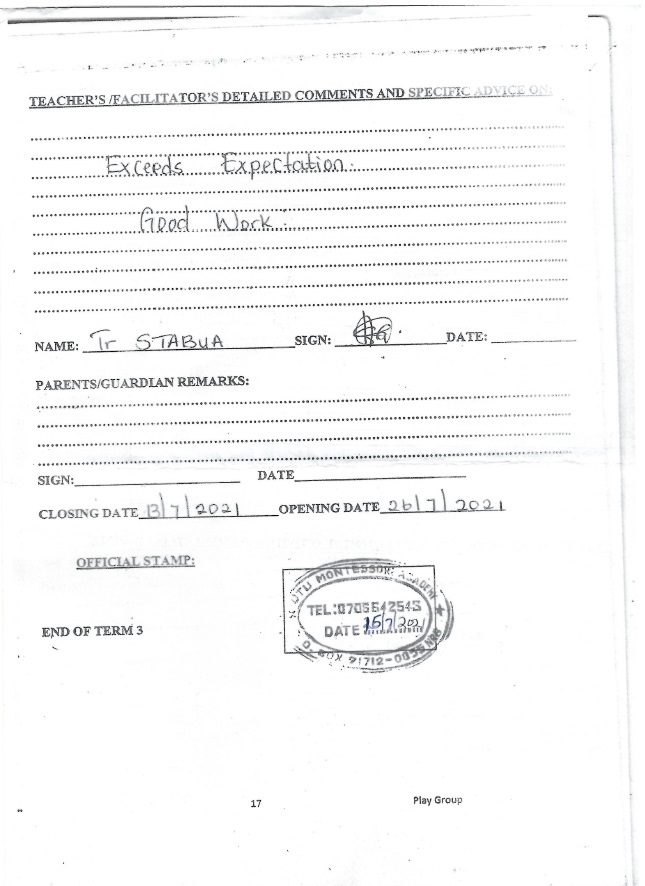 TEACHER'S /FACILITATOR'S DETAILED COMMENTS AND SPECIFIC ADVICE ON:
Exceeds Expectation.
Good Work.
NAME: Tr STABUA SIGN: DATE:
PARENTS/GUARDIAN REMARKS:
SIGN: DATE
CLOSING DATE 13/7/2021 OPENING DATE 26/7/2021
OFFICIAL STAMP:
UTU MONTESSORI ACADEMY
TEL:0705642543
DATE 15/7/2021
END OF TERM 3
17 Play Group